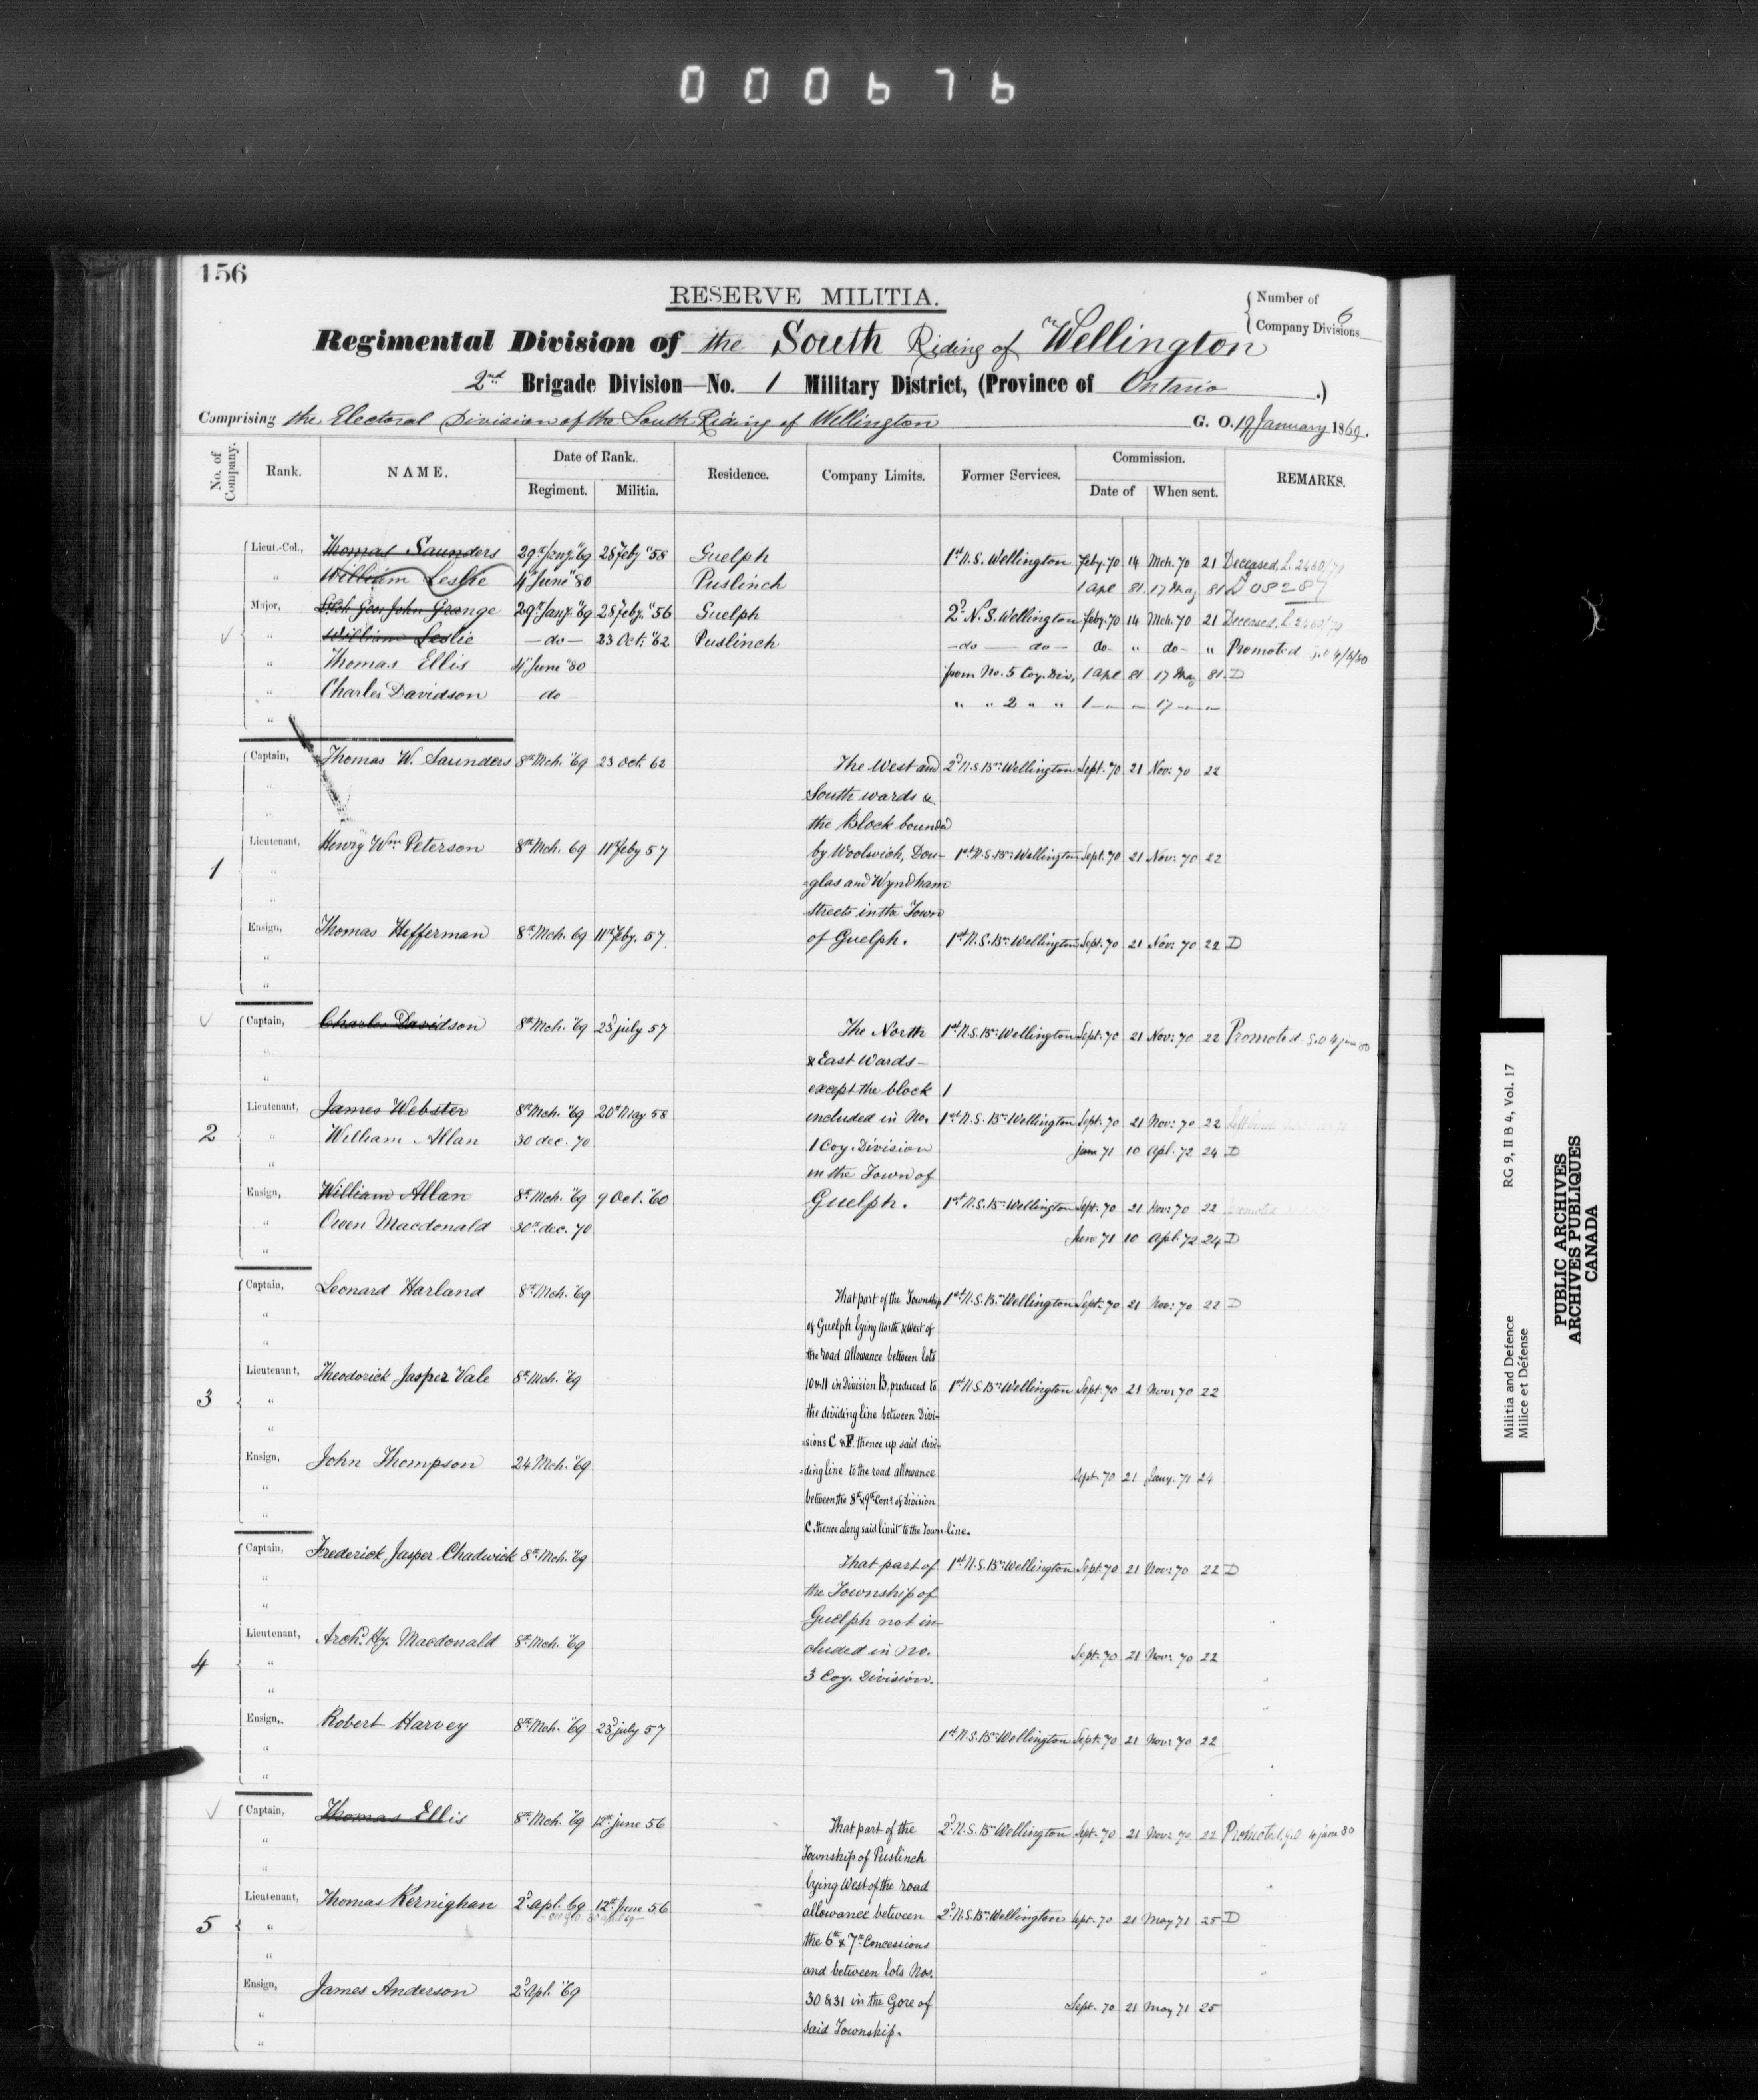 000676
156
RESERVE MILITIA.
{ Number of Company Divisions 6
Regimental Division of the South Riding of Wellington
2nd Brigade Division—No. 1 Military District, (Province of Ontario .)
Comprising the Electoral Division of the South Riding of Wellington G. O. 19 January 1869.
No. of Company. Rank. NAME. Date of Rank. Residence. Company Limits. Former Services. Commission. REMARKS.
Regiment. Militia. Date of When sent.
Lieut.-Col., Thomas Saunders 29th Jany. "69 28 Feby "58 Guelph 1st N.S. Wellington Feby. 70 14 Mch. 70 21 Deceased, L. 2460/
" William Leslie 4th June "80 Puslinch 1 Apl 81 17 May 81 D 08287
Major, Geo. John Grange 29th Jany. "69 28 Feby. "56 Guelph 2d N.S. Wellington Feby. 70 14 Mch. 70 21 Deceased, L. 2460/
" William Leslie —do— 23 Oct. "62 Puslinch —do— do— do- " do- " Promoted G.O 4/6/80
" Thomas Ellis 4th June "80 from No. 5 Coy. Div, 1 Apl 81 17 May 81. D
" Charles Davidson do— " " 2 " " 1 — — 17 — —
"
Captain, Thomas W. Saunders 8th Mch. "69 23 Oct. 62 The West and 2d N.S. Bn. Wellington Sept. 70 21 Nov: 70 22
" South wards &
" the Block bounded
1 Lieutenant, Henry Wm. Peterson 8th Mch. 69 11th Feby 57 by Woolwich, Dou- 1st N.S. Bn. Wellington Sept. 70 21 Nov: 70 22
" =glas and Wyndham
" streets in the Town
Ensign, Thomas Hefferman 8th Mch. 69 11th Feby. 57. of Guelph. 1st N.S. Bn. Wellington Sept. 70 21 Nov: 70 22 D
"
"
Captain, Charles Davidson 8th Mch. "69 23d July 57 The North 1st N.S. Bn. Wellington Sept. 70 21 Nov: 70 22 Promoted. G.O 4 June 80
" & East Wards—
" except the block 1
2 Lieutenant, James Webster 8th Mch. "69 20th May 58 included in No. 1st N.S. Bn. Wellington Sept. 70 21 Nov: 70 22
" William Allan 30 dec. 70 1 Coy. Division June 71 10 Apl. 72 24 D
" in the Town of
Ensign, William Allan 8th Mch. "69 9 Oct. "60 Guelph. 1st N.S. Bn. Wellington Sept. 70 21 Nov: 70 22 promoted
" Owen Macdonald 30th dec. 70 June 71 10 Apl. 72 24 D
"
Captain, Leonard Harland 8th Mch. "69 That part of the Township 1st N.S. Bn. Wellington Sept. 70 21 Nov: 70 22 D
" of Guelph lying North & West of
" the road allowance between lots
3 Lieutenant, Theodorick Jasper Vale 8th Mch. "69 10 & 11 in Division B, produced to 1st N.S. Bn. Wellington Sept. 70 21 Nov: 70 22
" the dividing line between Divi-
" =sions C & F. thence up said divi-
Ensign, John Thompson 24 Mch. "69 =ding line to the road allowance Sept. 70 21 Jany. 71 24
" between the 8th & 9th Cons. of Division
" C. thence along said limit to the Town line.
Captain, Frederick Jasper Chadwick 8th Mch. "69 That part of 1st N.S. Bn. Wellington Sept. 70 21 Nov: 70 22 D
" the Township of
" Guelph not in-
4 Lieutenant, Archd. Hy. Macdonald 8th Mch. "69 cluded in No. Sept. 70 21 Nov: 70 22
" 3 Coy. Division.
"
Ensign, Robert Harvey 8th Mch. "69 23d July 57 1st N.S. Bn. Wellington Sept. 70 21 Nov: 70 22
"
"
Captain, Thomas Ellis 8th Mch. "69 12th June 56 That part of the 2d N.S. Bn. Wellington Sept. 70 21 Nov: 70 22 Promoted, G.O 4 June 80
" Township of Puslinch
" lying West of the road
5 Lieutenant, Thomas Kernighan 2d Apl. 69 12th June 56 allowance between 2d N.S. Bn. Wellington Sept. 70 21 May 71 25 D
" the 6th & 7th Concessions
" and between lots Nos.
Ensign, James Anderson 2d Apl. "69 30 & 31 in the Gore of Sept. 70 21 May 71 25
" said Township.
"
Militia and Defence RG 9, II B 4, Vol. 17
Milice et Défense
PUBLIC ARCHIVES
ARCHIVES PUBLIQUES
CANADA